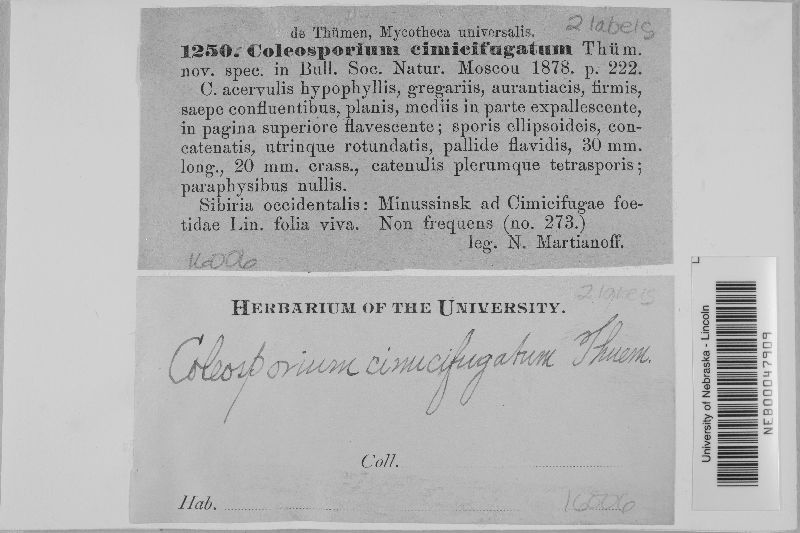 2 labels
de Thümen, Mycotheca universalis.
1250. Coleosporium cimicifugatum Thüm.
nov. spec. in Bull. Soc. Natur. Moscou 1878. p. 222.
C. acervulis hypophyllis, gregariis, aurantiacis, firmis,
saepe confluentibus, planis, mediis in parte expallescente,
in pagina superiore flavescente; sporis ellipsoideis, con-
catenatis, utrinque rotundatis, pallide flavidis, 30 mm.
long., 20 mm. crass., catenulis plerumque tetrasporis;
paraphysibus nullis.
Sibiria occidentalis: Minussinsk ad Cimicifugae foe-
tidae Lin. folia viva. Non frequens (no. 273.)
leg. N. Martianoff.
16006
2 labels
HERBARIUM OF THE UNIVERSITY.
Coleosporium cimicifugatum Thuem.
Coll.
Hab.
16006
University of Nebraska - Lincoln
NEB00047909